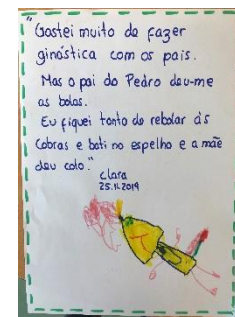 "Gostei muito de fazer
ginástica com os pais.
Mas o pai do Pedro deu-me
as bolas.
Eu fiquei tonta de rebolar às
Cobras e bati no espelho e a mãe
deu colo."
Clara
25.11.2019